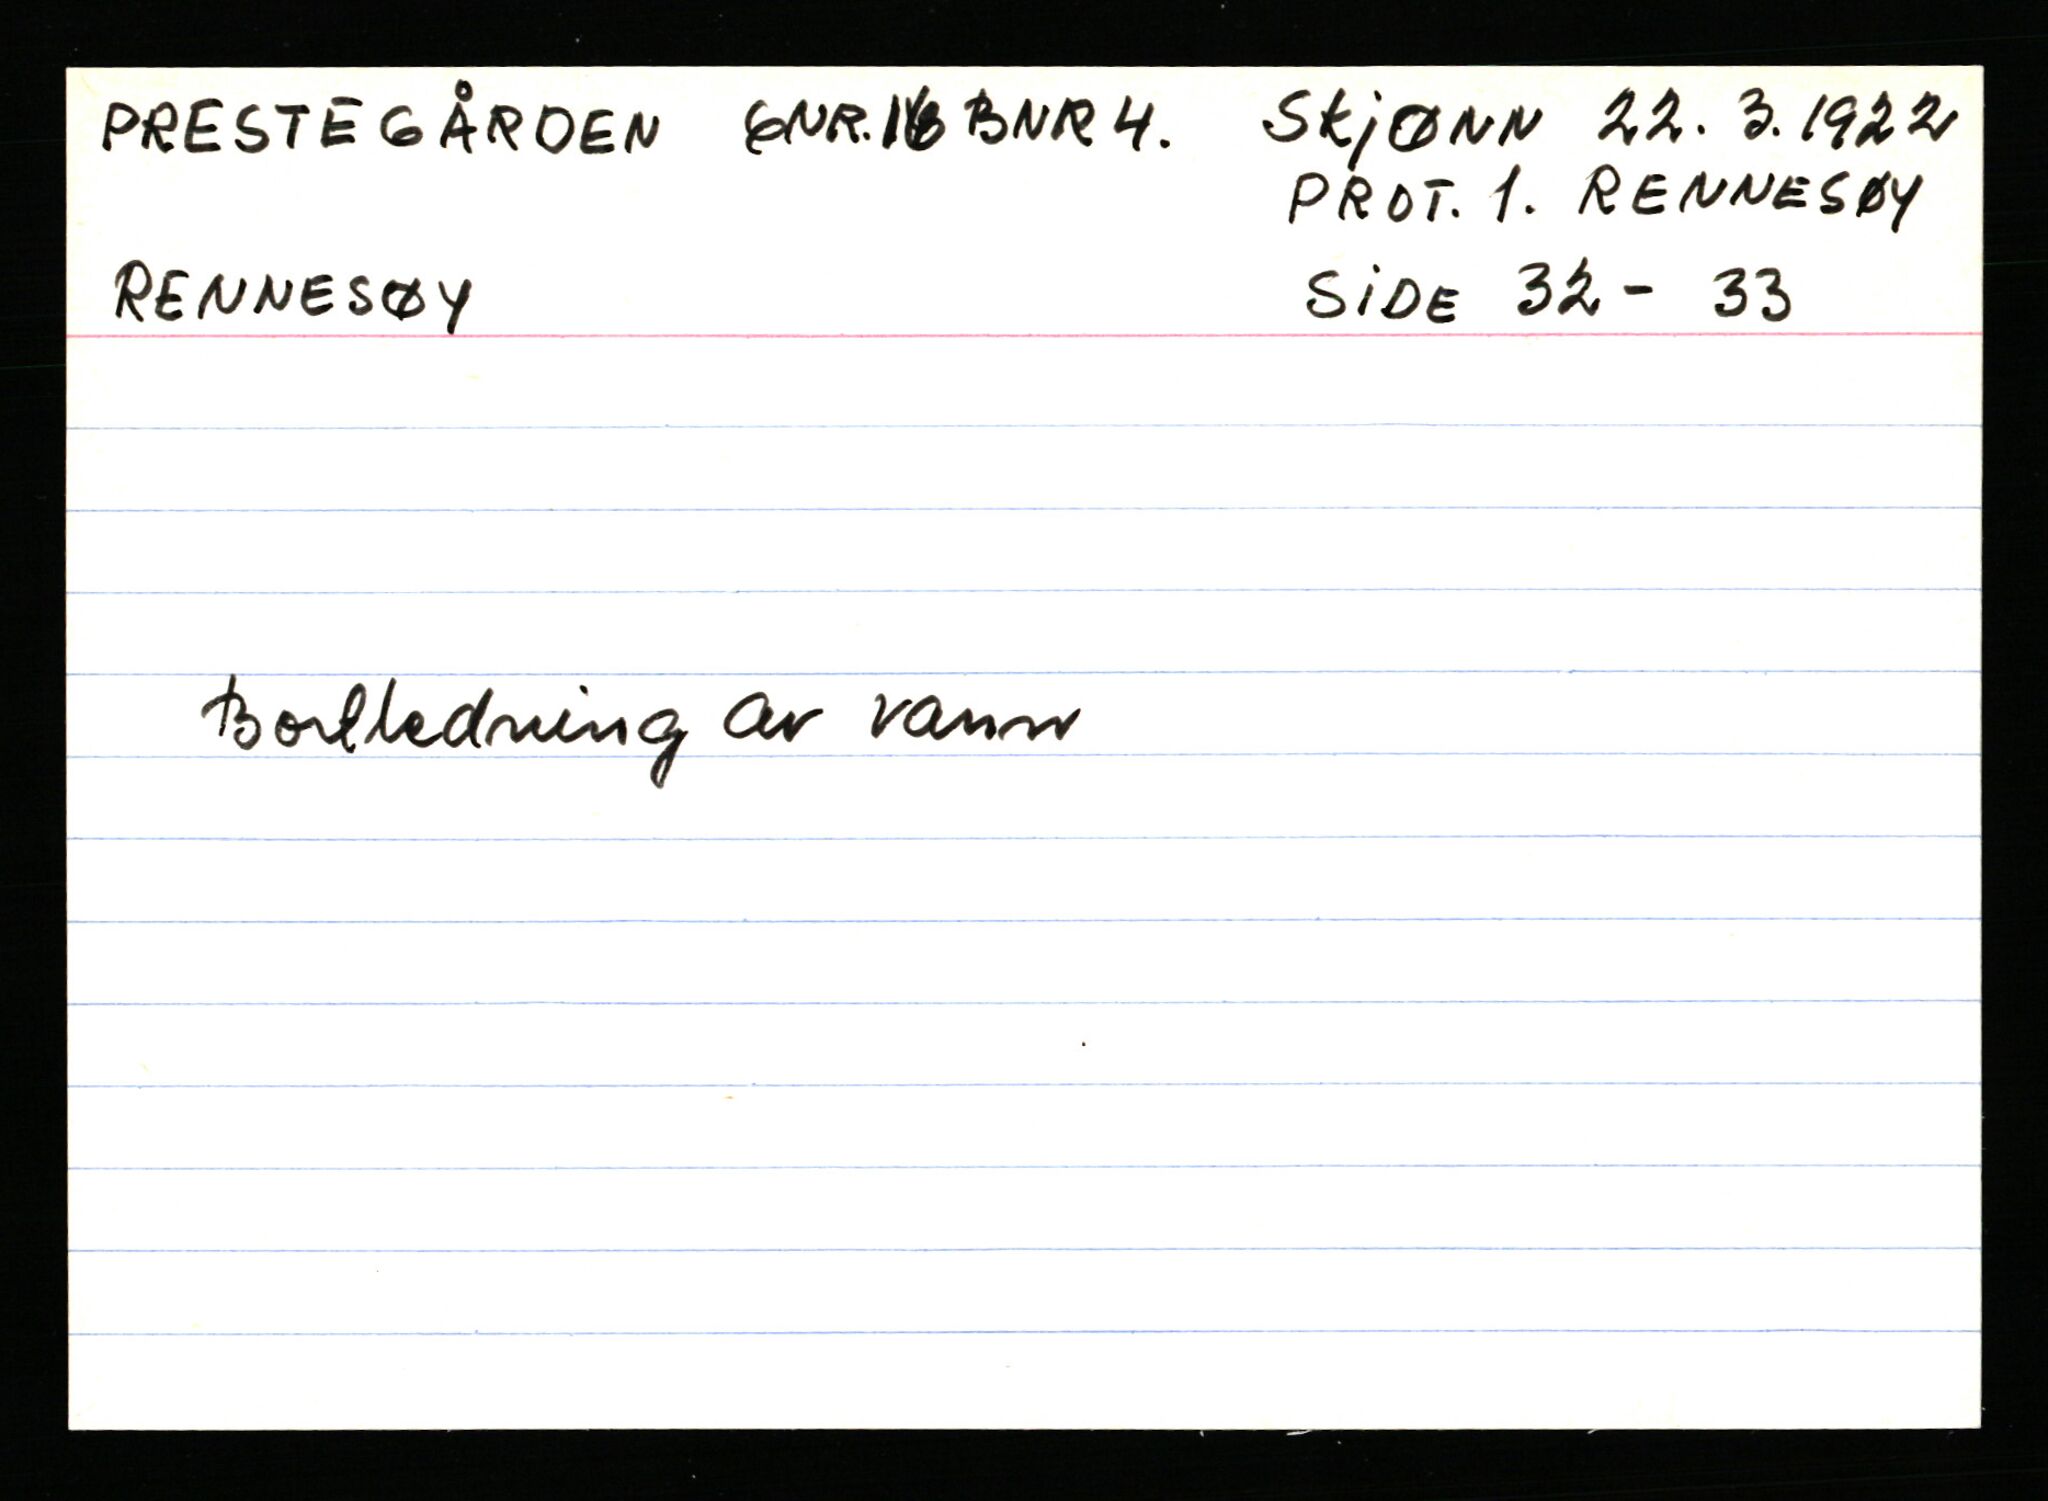 PRESTEGÅRDEN GNR. BNR 4. SKJØNN 22. 3. 1922
PROT. 1. RENNESØY
RENNESØY SIDE 32 - 33
Bortledning av vann